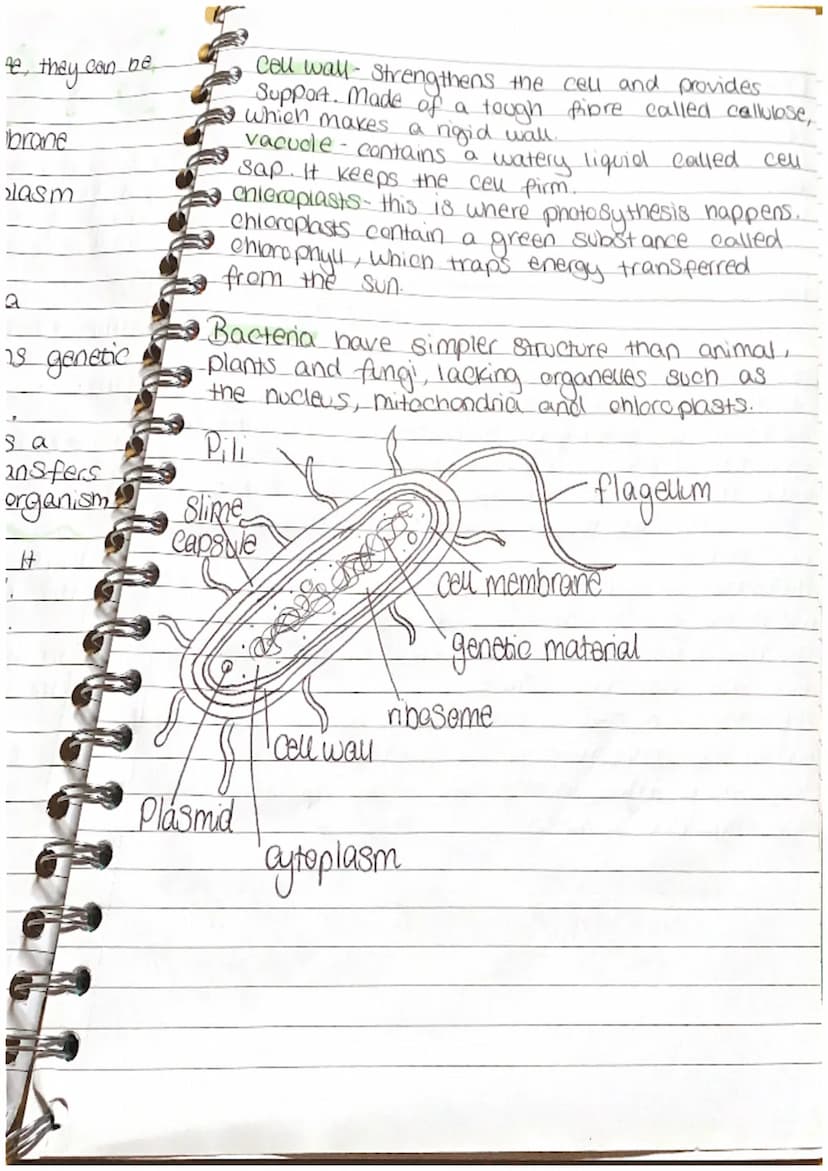 e, they can be
brane
plasm
a
ns genetic
.
s a
ansfers
organism
It
.
Cell wall - strengthens the cell and provides
support. Made of a tough fibre called cellulose,
which makes a rigid wall.
vacuole - contains a watery liquid called cell
sap. It keeps the cell firm.
chloroplasts - this is where photosythesis happens.
chloroplasts contain a green substance called
chlorophyll, which traps energy transferred
from the sun.
Bacteria have simpler structure than animal,
plants and fungi, lacking organelles such as
the nucleus, mitochondria and chloroplasts.
Pili
flagellum
Slime
capsule
cell membrane
genetic material
ribosome
cell wall
Plasmid
cytoplasm